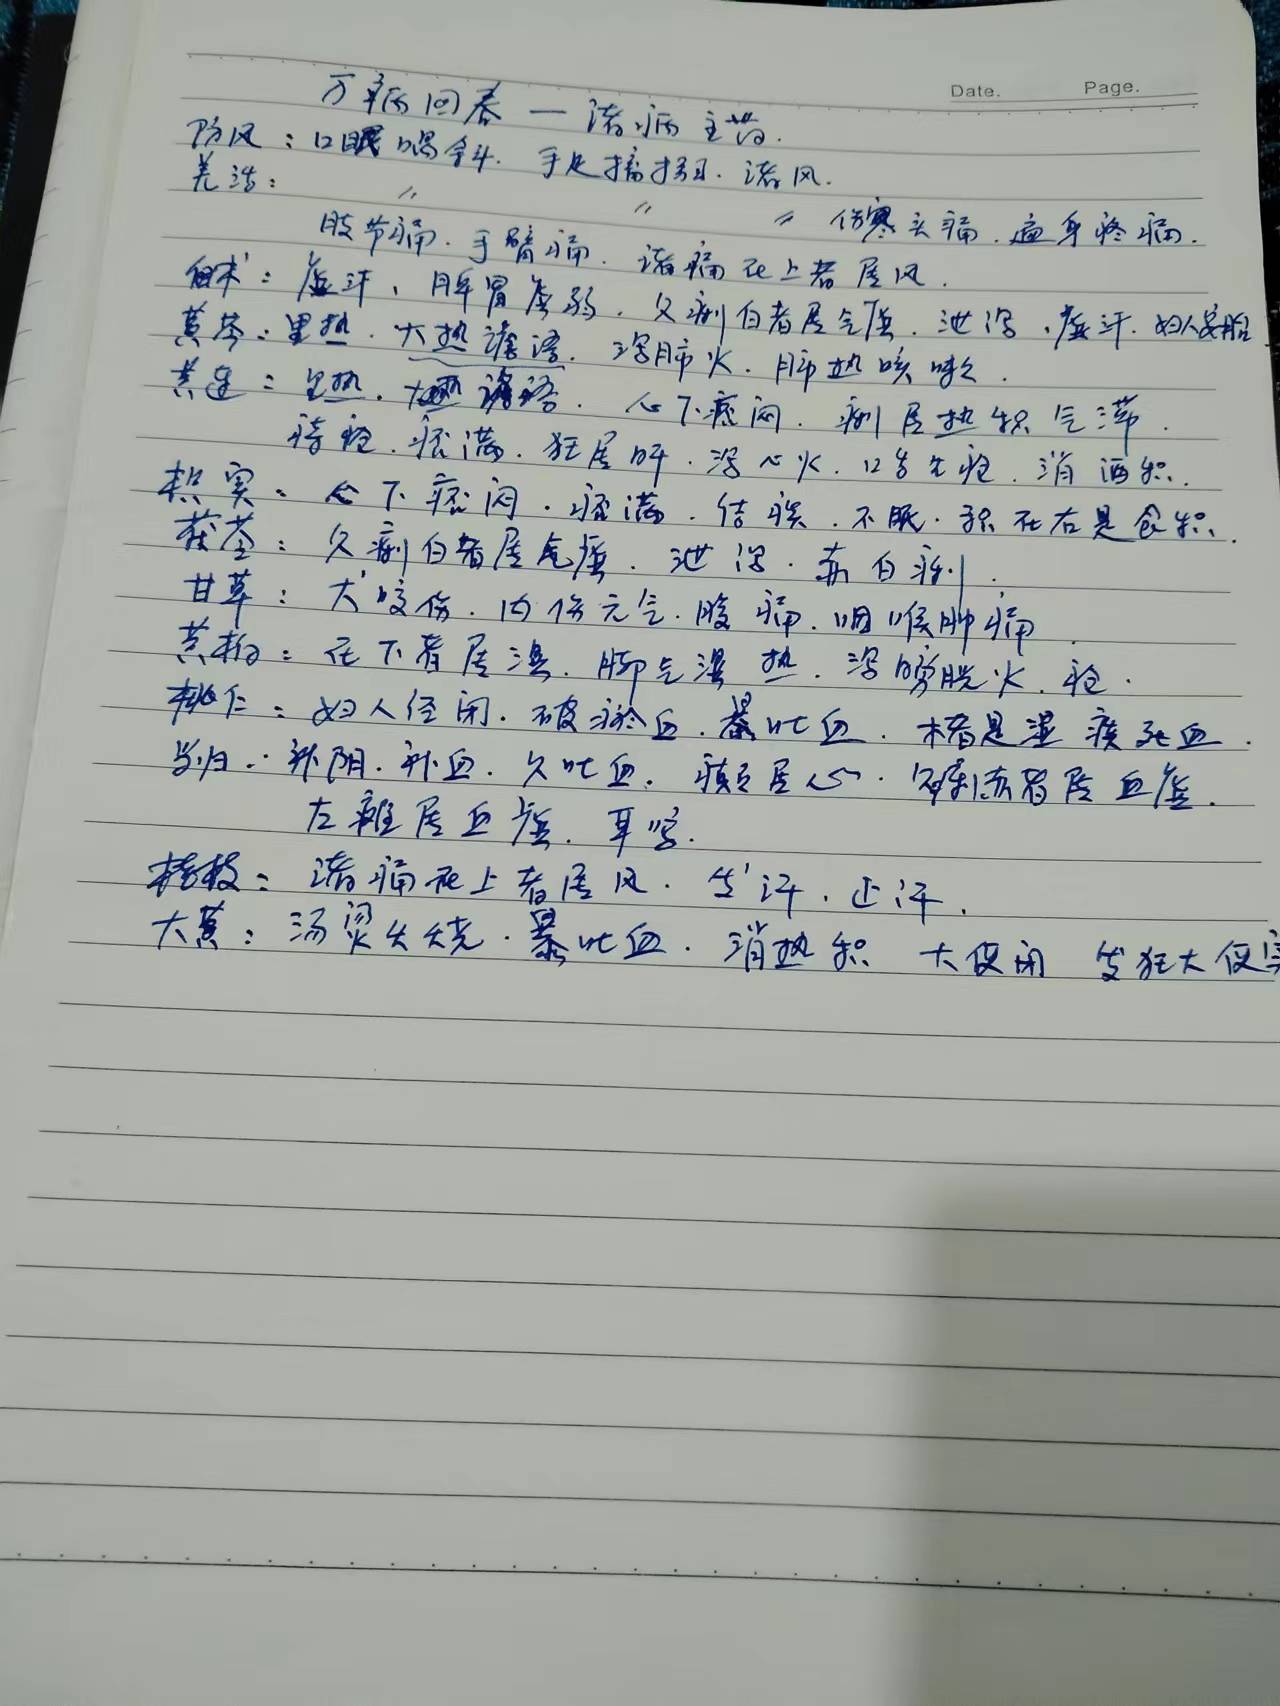 Date. Page.
万病回春一诸病主药.
防风：口眼喎斜. 手足搐搦. 诸风.
羌活： 〃 〃 〃 伤寒头痛. 遍身疼痛.
肢节痛. 手臂痛. 诸痛在上者属风.
白术：虚汗、脾胃虚弱. 久痢白者属气虚. 泄泻、虚汗. 妇人安胎
黄芩：里热. 大热谵语. 泻肺火. 肺热咳嗽.
黄连：里热. 大热谵语. 心下痞闷. 痢属热积气滞.
诸疮. 痞满. 狂属肝. 泻心火. 口舌生疮. 消酒积.
枳实：心下痞闷. 痞满. 结痰. 不眠. 积在右是食积.
茯苓：久痢白者属气虚. 泄泻. 赤白痢.
甘草：犬咬伤. 内伤元气. 腹痛. 咽喉肿痛.
黄柏：在下者属湿. 脚气湿热. 泻膀胱火. 疮.
桃仁：妇人经闭. 破瘀血. 暴吐血. 是湿痰死血.
当归：补阴. 补血. 久吐血. 属心. 赤者属血虚.
左瘫属血虚. 耳鸣.
桂枝：诸痛在上者属风. 发汗. 止汗.
大黄：汤烫火烧. 暴吐血. 消热积 大便闭 发狂大便实